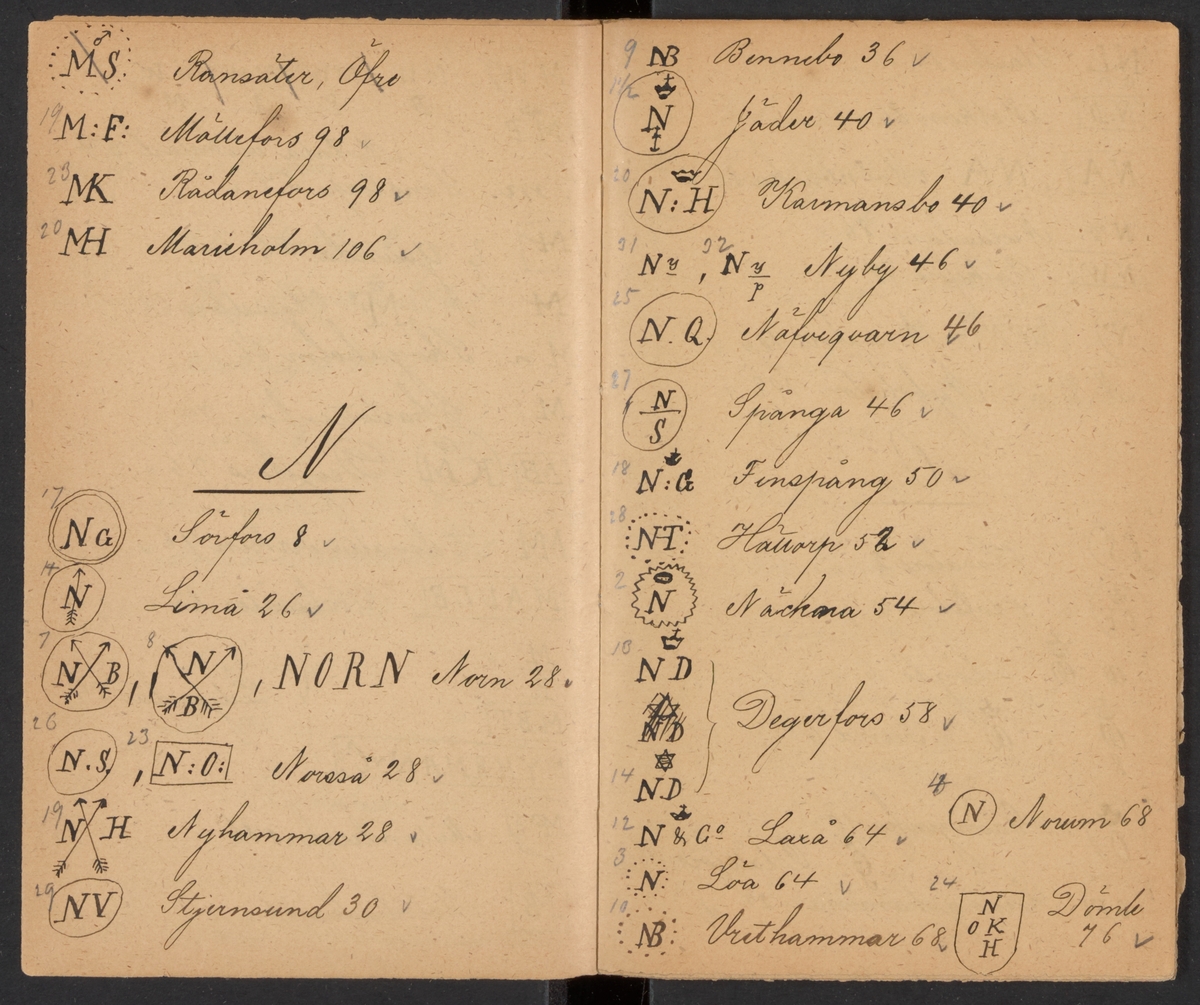 MS Ransäter, Öfre
19 M:F: Möllefors 98
23 MK Rådanefors 98 ✓
20 MH Marieholm 106 ✓
N
17 NG Sörfors 8 ✓
4 N Limå 26 ✓
7 N B, 8 N B, NORN Norn 28 ✓
26 N.S., 23 N:O: Norsså 28 ✓
19 N H Nyhammar 28 ✓
29 NV Stjernsund 30 ✓
9 NB Bennebo 36 ✓
N Jäder 40 ✓
20 N:H Karmansbo 40 ✓
31 Ny, 32 Ny p Nyby 46 ✓
25 N.Q. Näfveqvarn 46 ✓
27 N S Spånga 46 ✓
18 N:G Finspång 50 ✓
28 NT Hättorp 52 ✓
2 N 54 ✓
13 ND
ND
Degerfors 58 ✓
14 ND
N Norum 68
12 N & Co Laxå 64 ✓
3 N: Löa 64 ✓
10 NB Vrethammar 68 ✓
24 N O K H Dömle
76 ✓